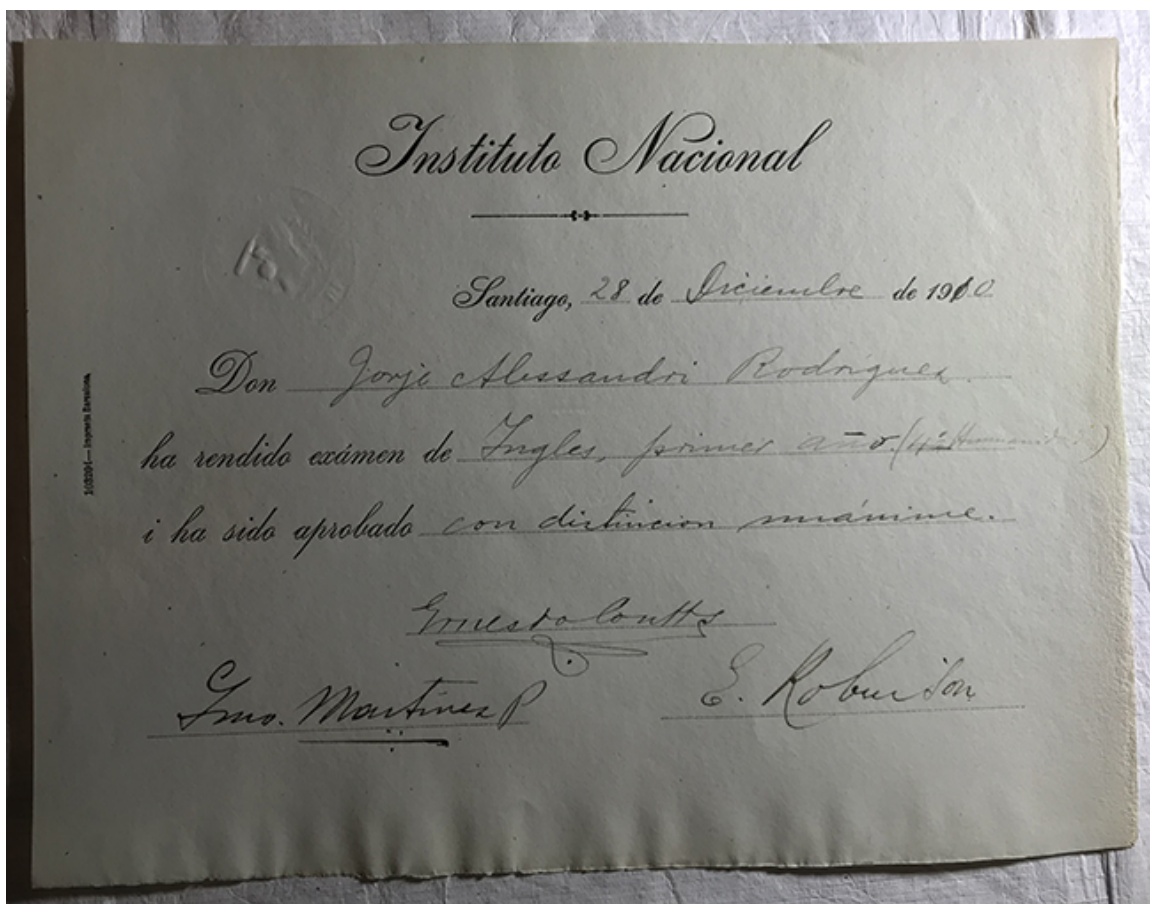 Instituto Nacional
Santiago, 28 de Diciembre de 1910
Don Jorje Alessandri Rodríguez
ha rendido exámen de Ingles, primer año. (4º Humanidades)
i ha sido aprobado con distincion unánime.
Ernesto Coutts
Gmo. Martinez P
E. Robinson
Imprenta Barcelona